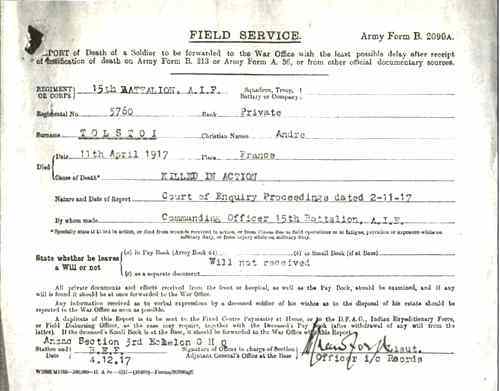 FIELD SERVICE.
Army Form B. 2090A.
REPORT of Death of a Soldier to be forwarded to the War Office with the least possible delay after receipt
of notification of death on Army Form B. 213 or Army Form A. 36, or from other official documentary sources.
REGIMENT OR CORPS 15th BATTALION, A.I.F. Squadron, Troop, Battery or Company
Regimental No. 5760 Rank Private
Surname TOLSTOI Christian Names Andre
Died Date 11th April 1917 Place France
Cause of Death* KILLED IN ACTION
Nature and Date of Report Court of Enquiry Proceedings dated 2-11-17
By whom made Commanding Officer 15th Battalion, A.I.F.
* Specially state if killed in action, or died from wounds received in action, or from illness due to field operations or to fatigue, privation or exposure while on
military duty, or from injury while on military duty.
State whether he leaves a Will or not
(a) in Pay Book (Army Book 64) (b) in Small Book (if at Base)
Will not received
(c) as a separate document
All private documents and effects received from the front or hospital, as well as the Pay Book, should be examined, and if any
will is found it should be at once forwarded to the War Office.
Any information received as to verbal expressions by a deceased soldier of his wishes as to the disposal of his estate should be
reported to the War Office as soon as possible.
A duplicate of this Report is to be sent to the Fixed Centre Paymaster at Home, or to the D.F.A.G., Indian Expeditionary Force,
or Field Disbursing Officer, as the case may require, together with the Deceased's Pay Book (after withdrawal of any will from the
latter). If the deceased's Small Book is at the Base, it should be forwarded to the War Office with this Report.
Anzac Section 3rd Echelon G H Q
Station and Date B.E.F. 4.12.17
Signature of Officer in charge of Section Adjutant General's Office at the Base
Lieut.
Officer i/c Records